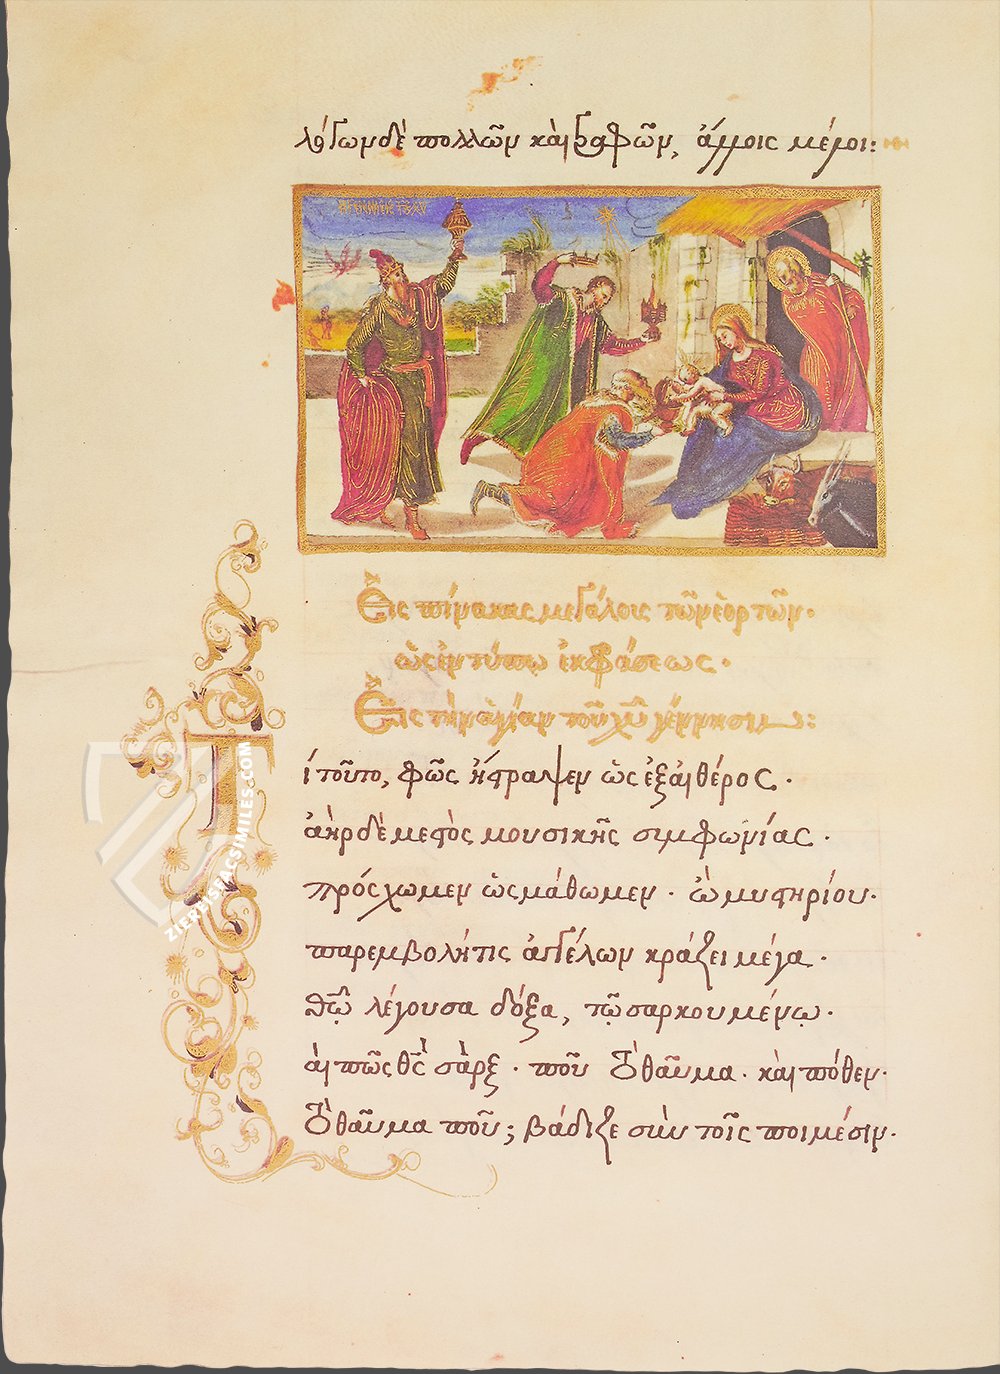 λόγων δὲ πολλῶν καὶ σοφῶν, ἄλλοις μέλοι:
Η ΓΕΝΝΗΣΙΣ ΤΟΥ ΧΥ
Εἰς πίνακας μεγάλους τῶν ἑορτῶν·
ὡς ἐν τύπῳ ἐκφράσεως·
Εἰς τὴν ἁγίαν τοῦ χῦ γέννησιν:
Τί τοῦτο, φῶς ἤστραψεν ὡς ἐξ αἰθέρος·
ἀὴρ δὲ μεστὸς μουσικῆς συμφωνίας·
πρόσχωμεν ὡς μάθωμεν· ὢ μυστηρίου·
παρεμβολή τις ἀγγέλων κράζει μέγα·
θῶ λέγουσα δόξα, τῷ σαρκουμένῳ·
αἲ πῶς θς σάρξ· ποῦ τὸ θαῦμα· καὶ πόθεν·
τὸ θαῦμα ποῦ; βάδιζε σὺν τοῖς ποιμέσιν·
ZIEREISFACSIMILES.COM